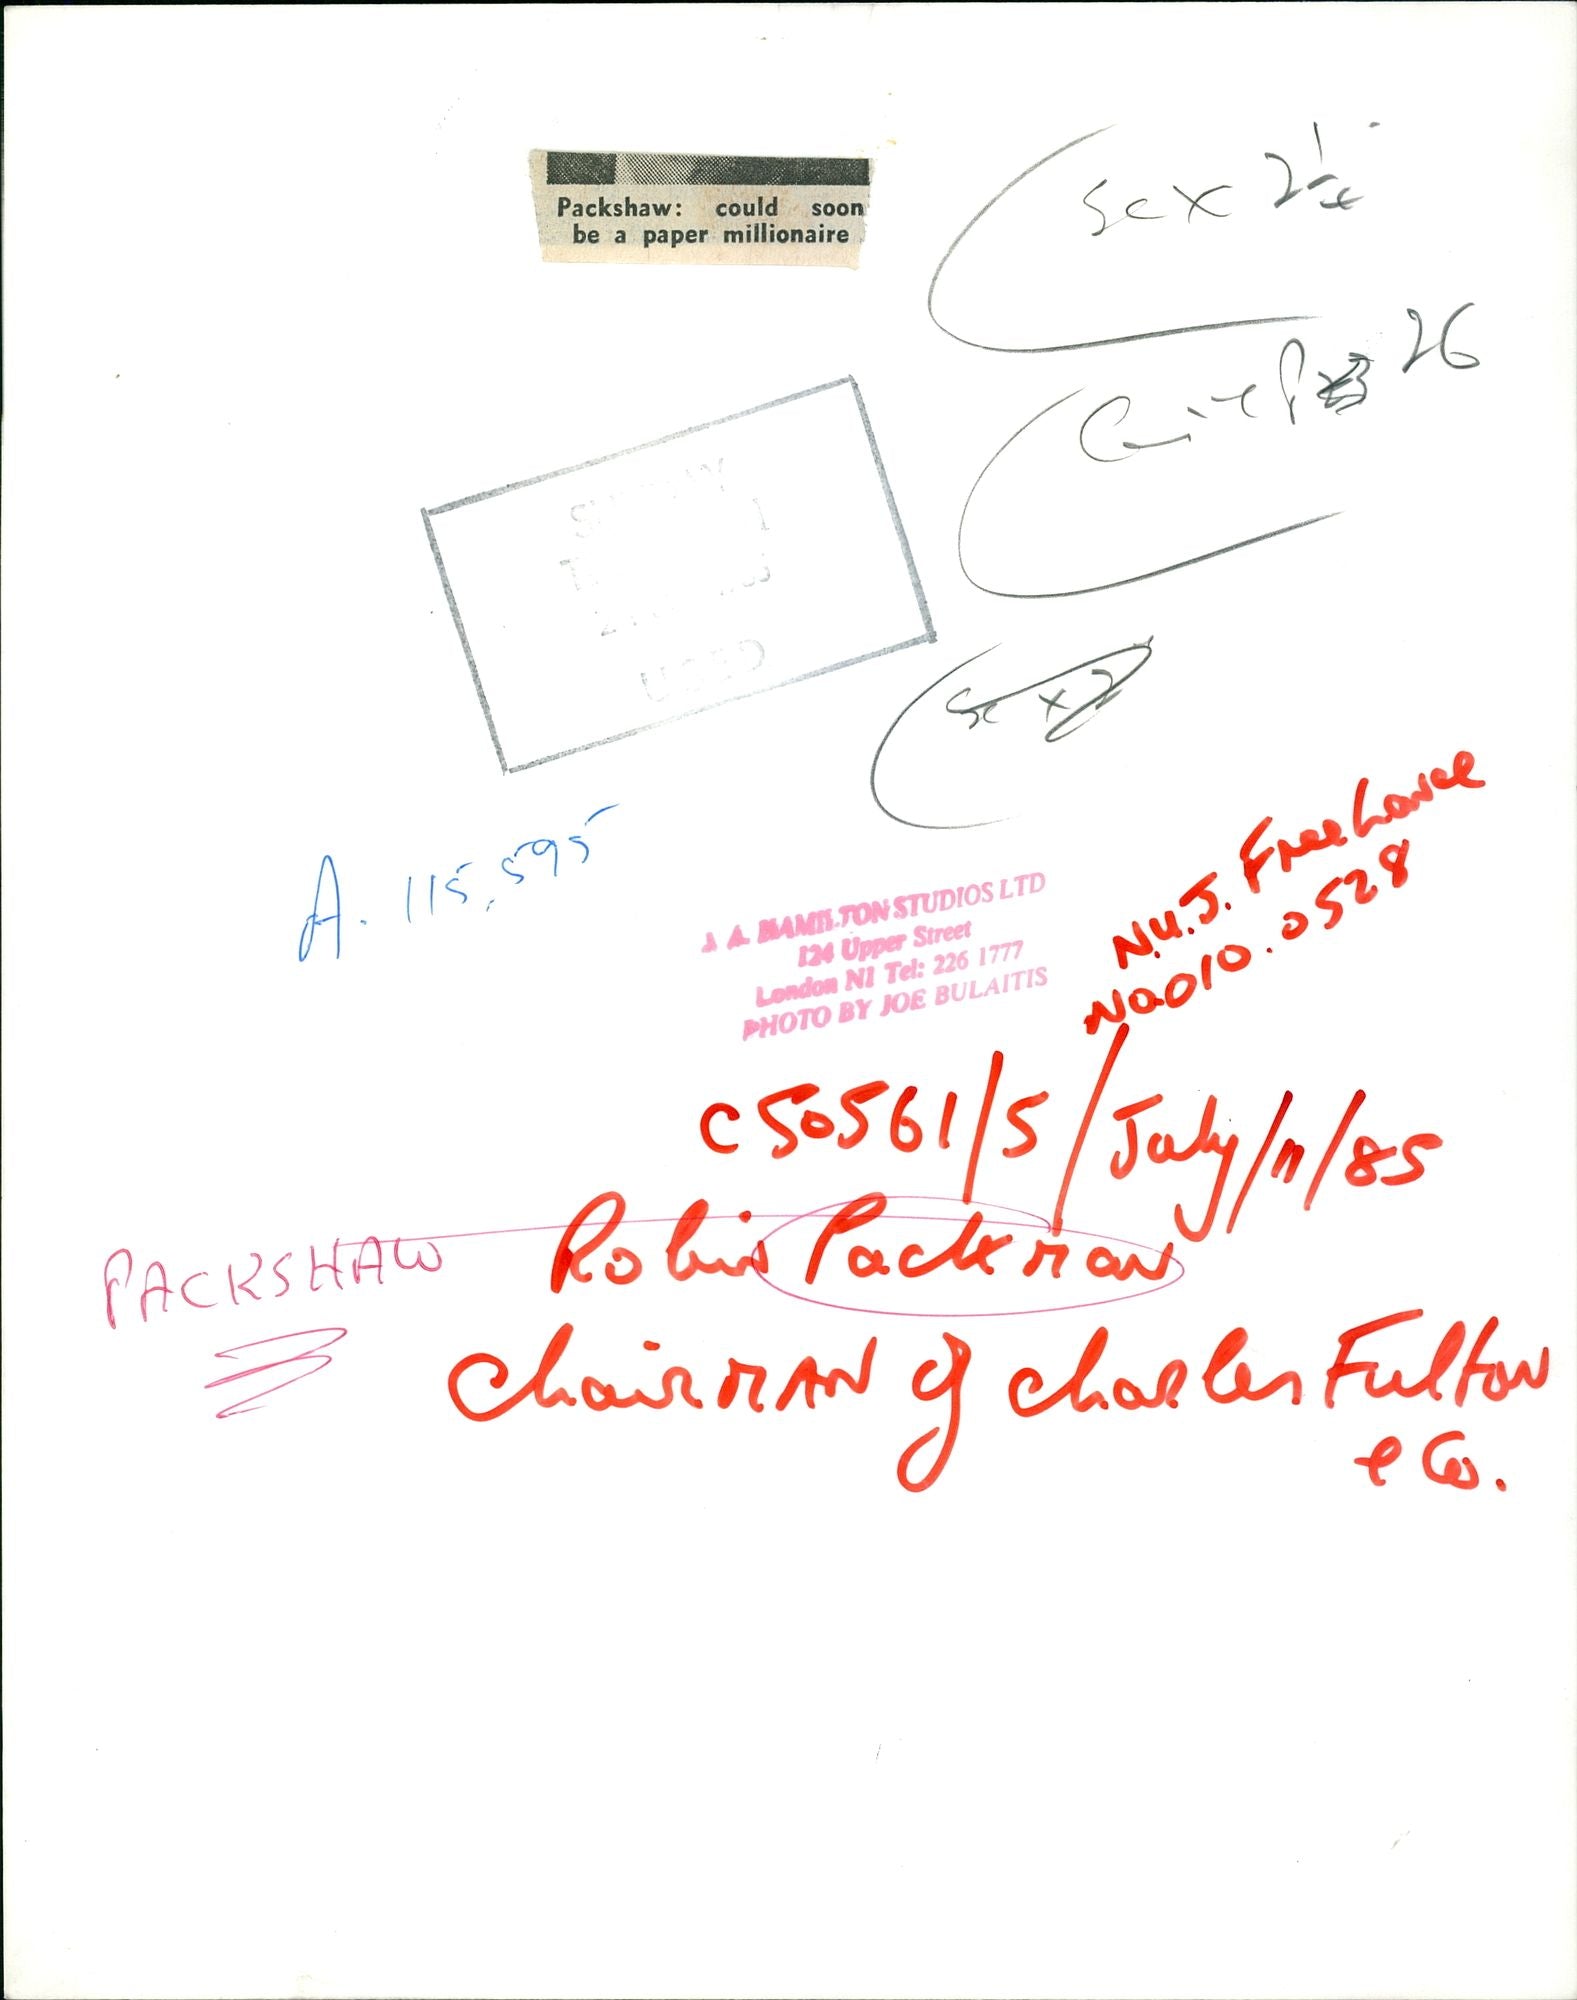 Packshaw: could soon
be a paper millionaire
26
USED
A. 115,595
J A HAMILTON STUDIOS LTD
124 Upper Street
London N1 Tel: 226 1777
PHOTO BY JOE BULAITIS
N.U.J. Freelance
No 010.0528
C50561/5/July/11/85
PACKSHAW
Robin Packman
Chairman of Charles Fulton
& Co.